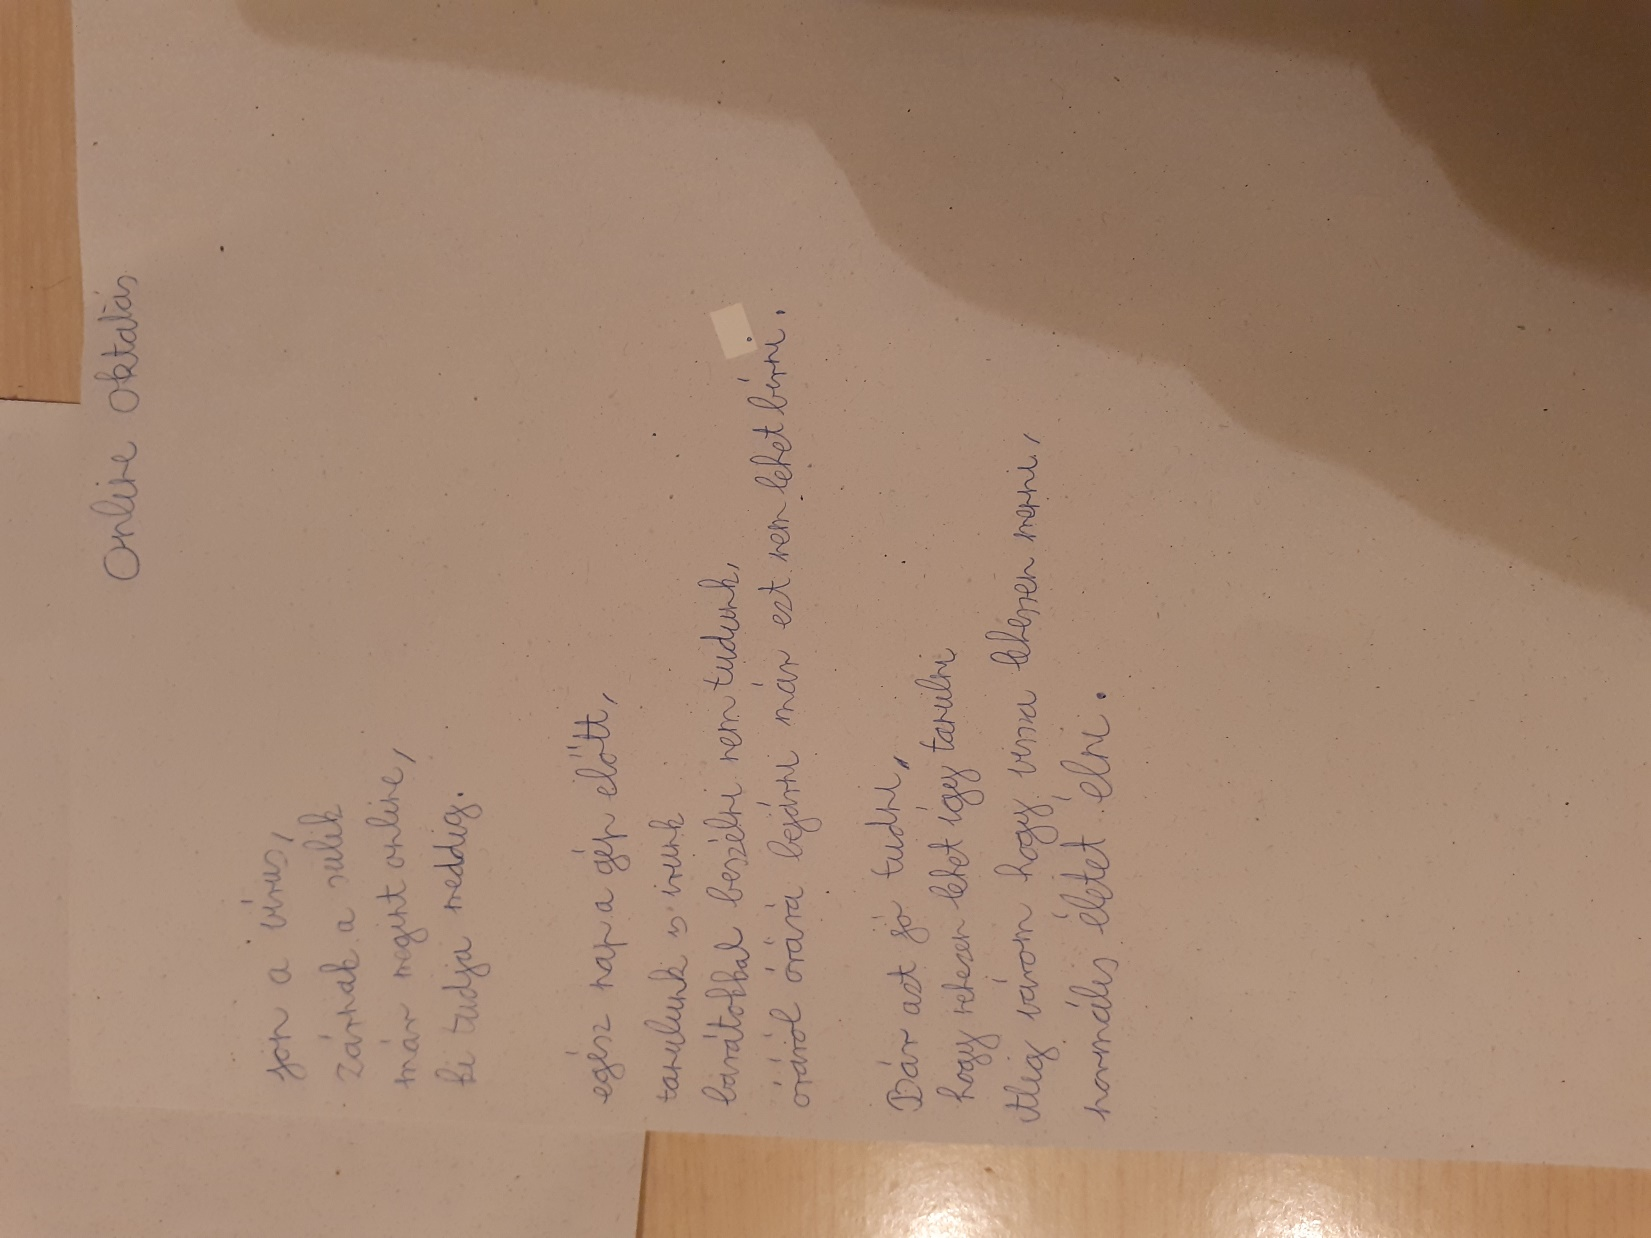 Online oktatás
jön a vírus,
zárnak a sulik
már megint online,
ki tudja meddig.
egész nap a gép előtt,
tanulunk s írunk
barátokkal beszélni nem tudunk,
óráról órára bejárni már ezt nem lehet bírni.
Bár azt jó tudni,
hogy nehezen lehet így tanulni
Alig várom hogy vissza lehessen menni,
normális életet élni.